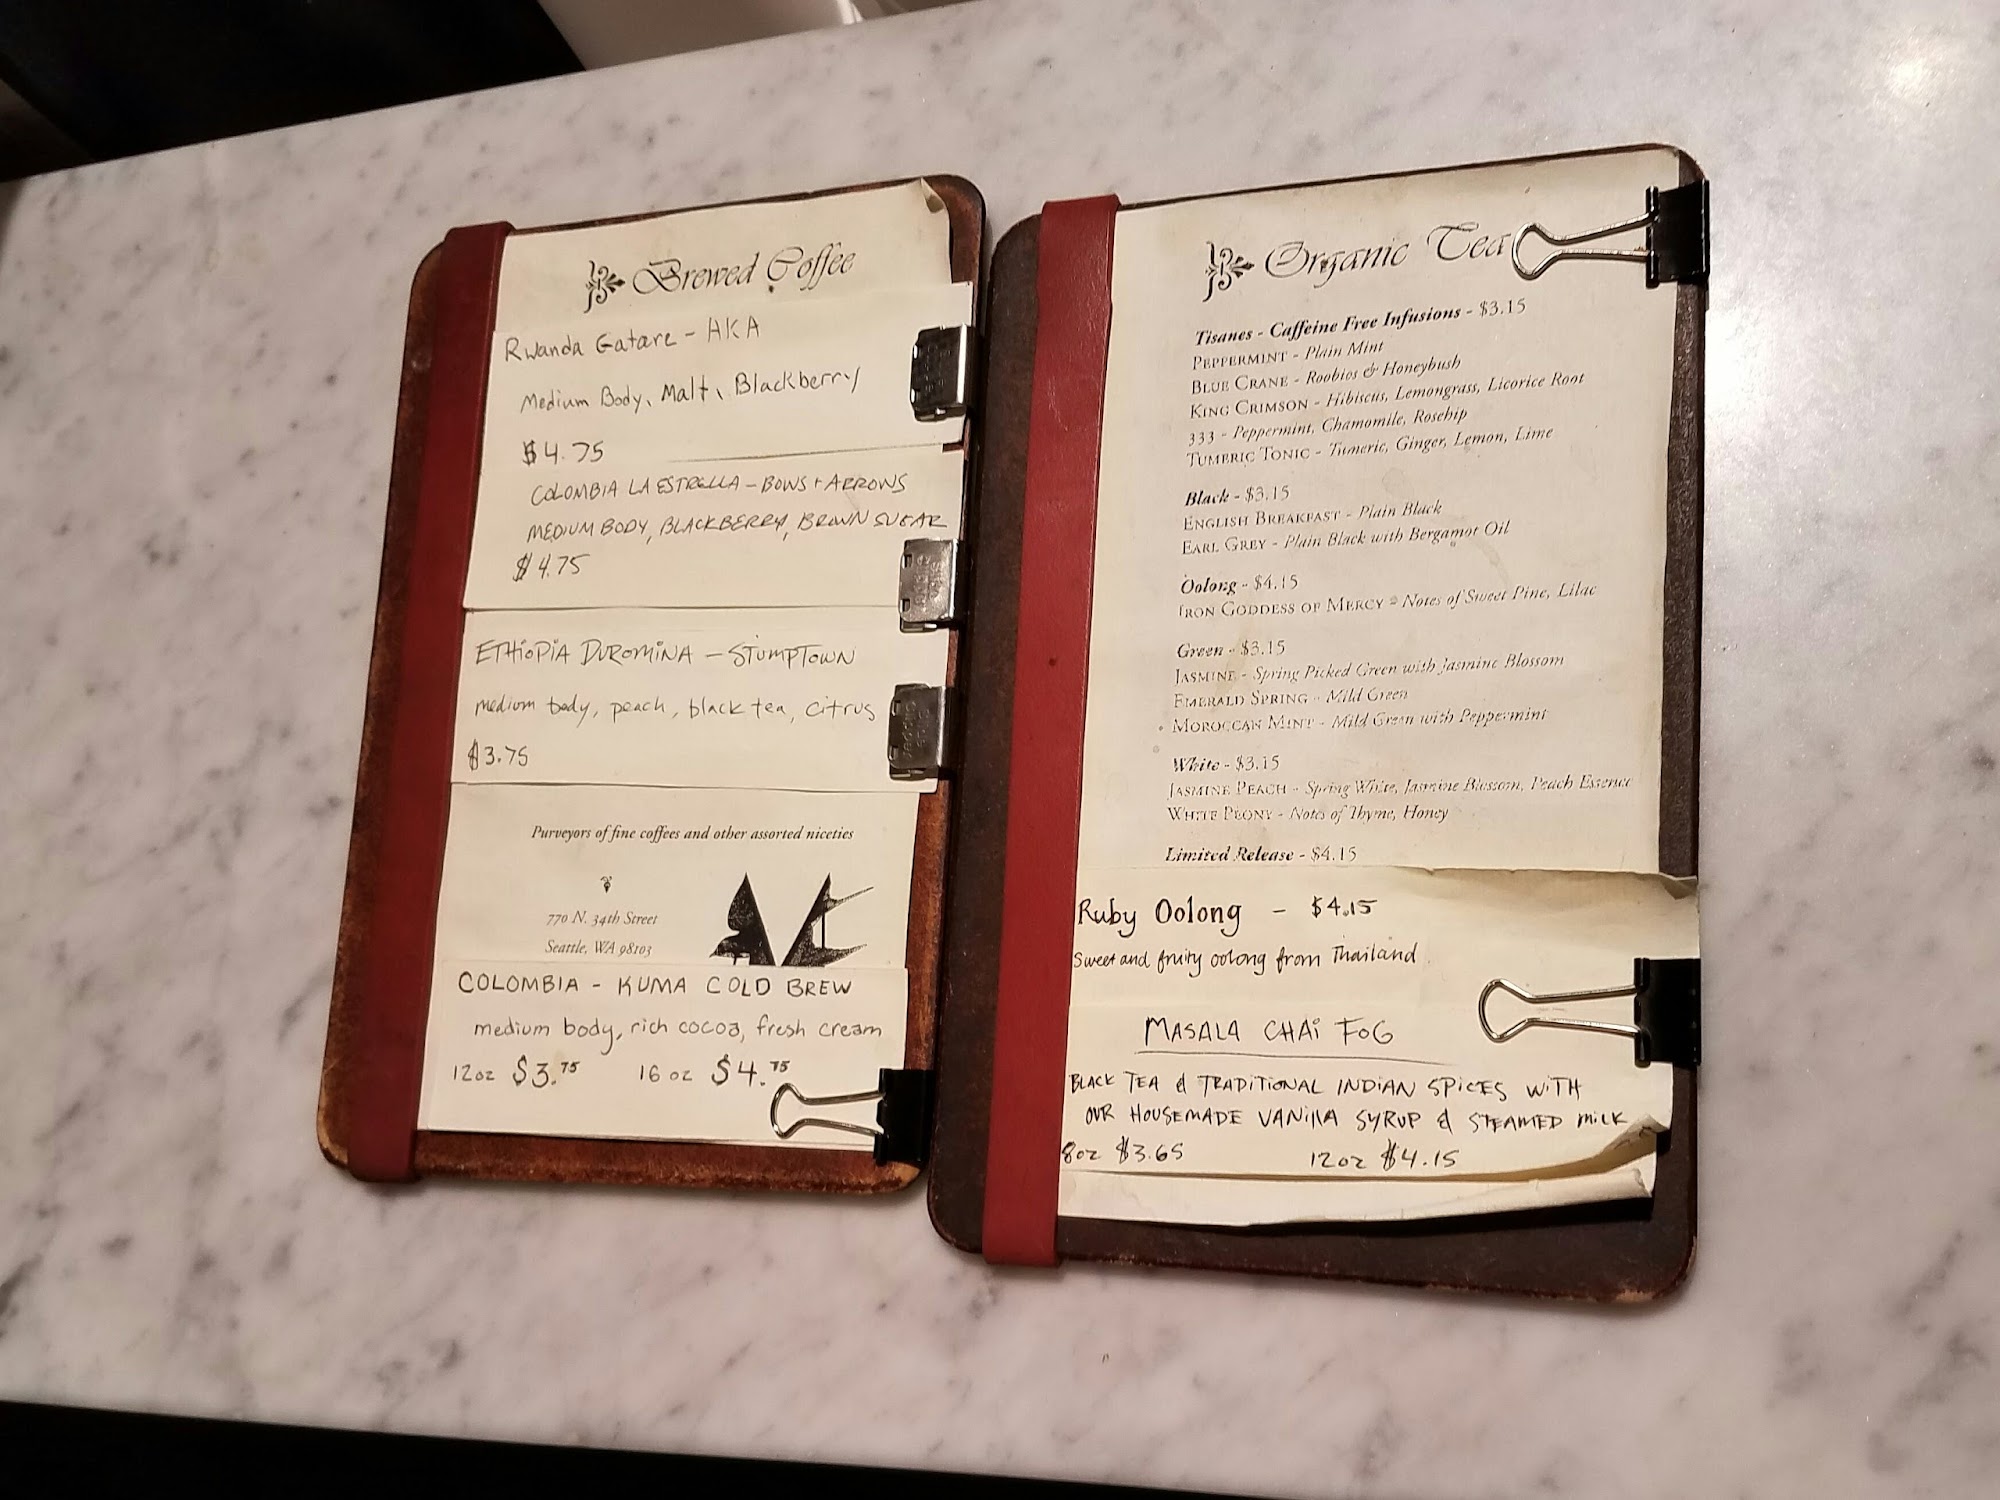 Brewed Coffee
Rwanda Gatare - AKA
Medium Body, Malt, Blackberry
$4.75
COLOMBIA LA ESTRELLA - BOWS + ARROWS
MEDIUM BODY, BLACKBERRY, BROWN SUGAR
$4.75
ETHIOPIA DUROMINA - STUMPTOWN
medium body, peach, black tea, citrus
$3.75
Purveyors of fine coffees and other assorted niceties
770 N. 34th Street
Seattle, WA 98103
COLOMBIA - KUMA COLD BREW
medium body, rich cocoa, fresh cream
12oz $3.75 16 oz $4.75
Organic Tea
Tisanes - Caffeine Free Infusions - $3.15
PEPPERMINT - Plain Mint
BLUE CRANE - Roobios & Honeybush
KING CRIMSON - Hibiscus, Lemongrass, Licorice Root
333 - Peppermint, Chamomile, Rosehip
TUMERIC TONIC - Tumeric, Ginger, Lemon, Lime
Black - $3.15
ENGLISH BREAKFAST - Plain Black
EARL GREY - Plain Black with Bergamot Oil
Oolong - $4.15
IRON GODDESS OF MERCY - Notes of Sweet Pine, Lilac
Green - $3.15
JASMINE - Spring Picked Green with Jasmine Blossom
EMERALD SPRING - Mild Green
MOROCCAN MINT - Mild Green with Peppermint
White - $3.15
JASMINE PEACH - Spring White, Jasmine Blossom, Peach Essence
WHITE PEONY - Notes of Thyme, Honey
Limited Release - $4.15
Ruby Oolong - $4.15
Sweet and fruity oolong from Thailand
MASALA CHAI FOG
BLACK TEA & TRADITIONAL INDIAN SPICES WITH
OUR HOUSEMADE VANILLA SYRUP & STEAMED MILK
8oz $3.65 12oz $4.15